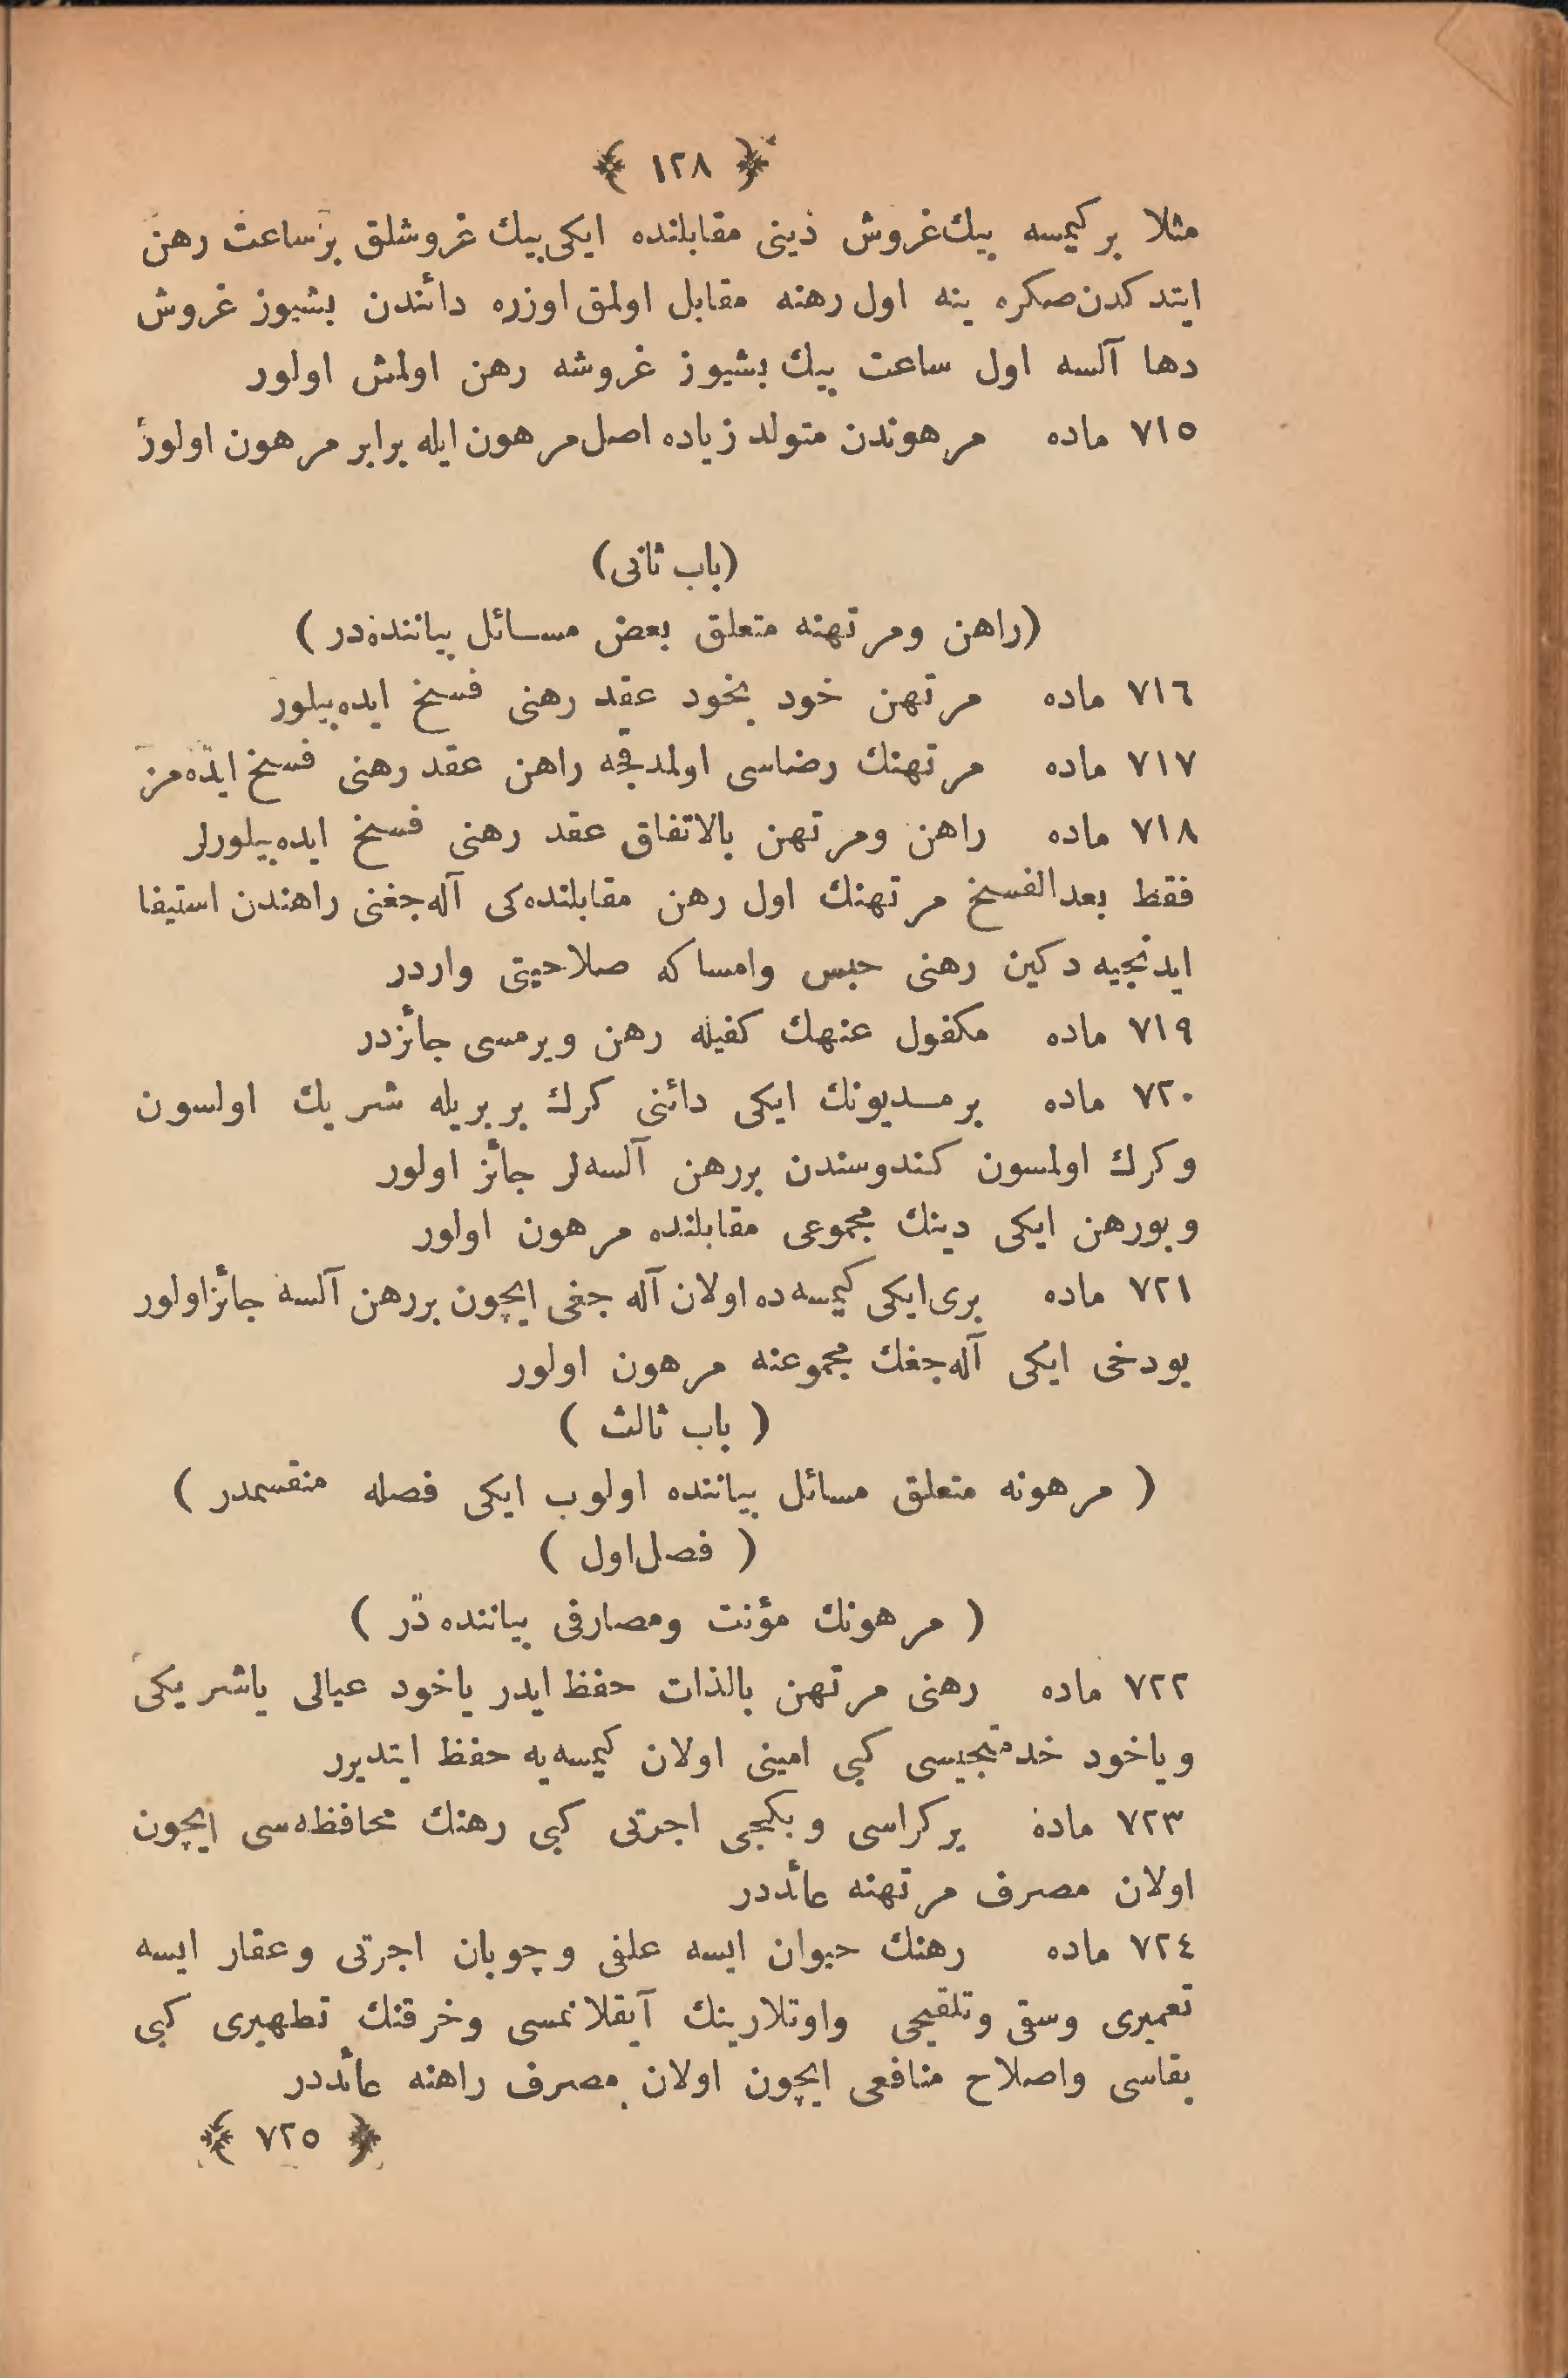 ﴿ ١٢٨ ﴾
مثلا بر كيمسه بيك غروش ديني مقابلنده ايكي بيك غروشلق بر ساعت رهن
ايتدكدن صكره ينه اول رهنه مقابل اولمق اوزره دائندن بشيوز غروش
دها آلسه اول ساعت بيك بشيوز غروشه رهن اولمش اولور
٧١٥ ماده مرهوندن متولد زياده اصل مرهون ايله برابر مرهون اولور
(باب ثانى)
(راهن ومرتهنه متعلق بعض مسائل بياننده در)
٧١٦ ماده مرتهن خود بخود عقد رهنى فسخ ايده بيلور
٧١٧ ماده مرتهنك رضاسى اولمدقجه راهن عقد رهنى فسخ ايده مز
٧١٨ ماده راهن ومرتهن بالاتفاق عقد رهنى فسخ ايده بيلورلر
فقط بعد الفسخ مرتهنك اول رهن مقابلنده كى آله جغنى راهندن استيفا
ايدنجيه دكين رهنى حبس وامساكه صلاحيتى واردر
٧١٩ ماده مكفول عنهك كفيله رهن ويرمسى جائزدر
٧٢٠ ماده بر مديونك ايكى دائنى كرك بربريله شريك اولسون
وكرك اولمسون كندوسندن بررهن آلسه لر جائز اولور
وبورهن ايكى دينك مجموعى مقابلنده مرهون اولور
٧٢١ ماده برى ايكى كيمسه ده اولان آله جغى ايچون بررهن آلسه جائز اولور
بودخى ايكى آله جغك مجموعنه مرهون اولور
( باب ثالث )
( مرهونه متعلق مسائل بياننده اولوب ايكى فصله منقسمدر )
( فصل اول )
( مرهونك مؤنت ومصارفى بياننده در )
٧٢٢ ماده رهنى مرتهن بالذات حفظ ايدر ياخود عيالى ياشريكى
وياخود خدمتجيسى كبى امينى اولان كيمسه يه حفظ ايتديرر
٧٢٣ ماده ير كراسى وبكجى اجرتى كبى رهنك محافظه سى ايچون
اولان مصرف مرتهنه عائددر
٧٢٤ ماده رهنك حيوان ايسه علفى وچوبان اجرتى وعقار ايسه
تعميرى وسقى وتلقيحى واوتلارينك آيقلانمسى وخرقنك تطهيرى كبى
بقاسى واصلاح منافعى ايچون اولان مصرف راهنه عائددر
﴿ ٧٢٥ ﴾